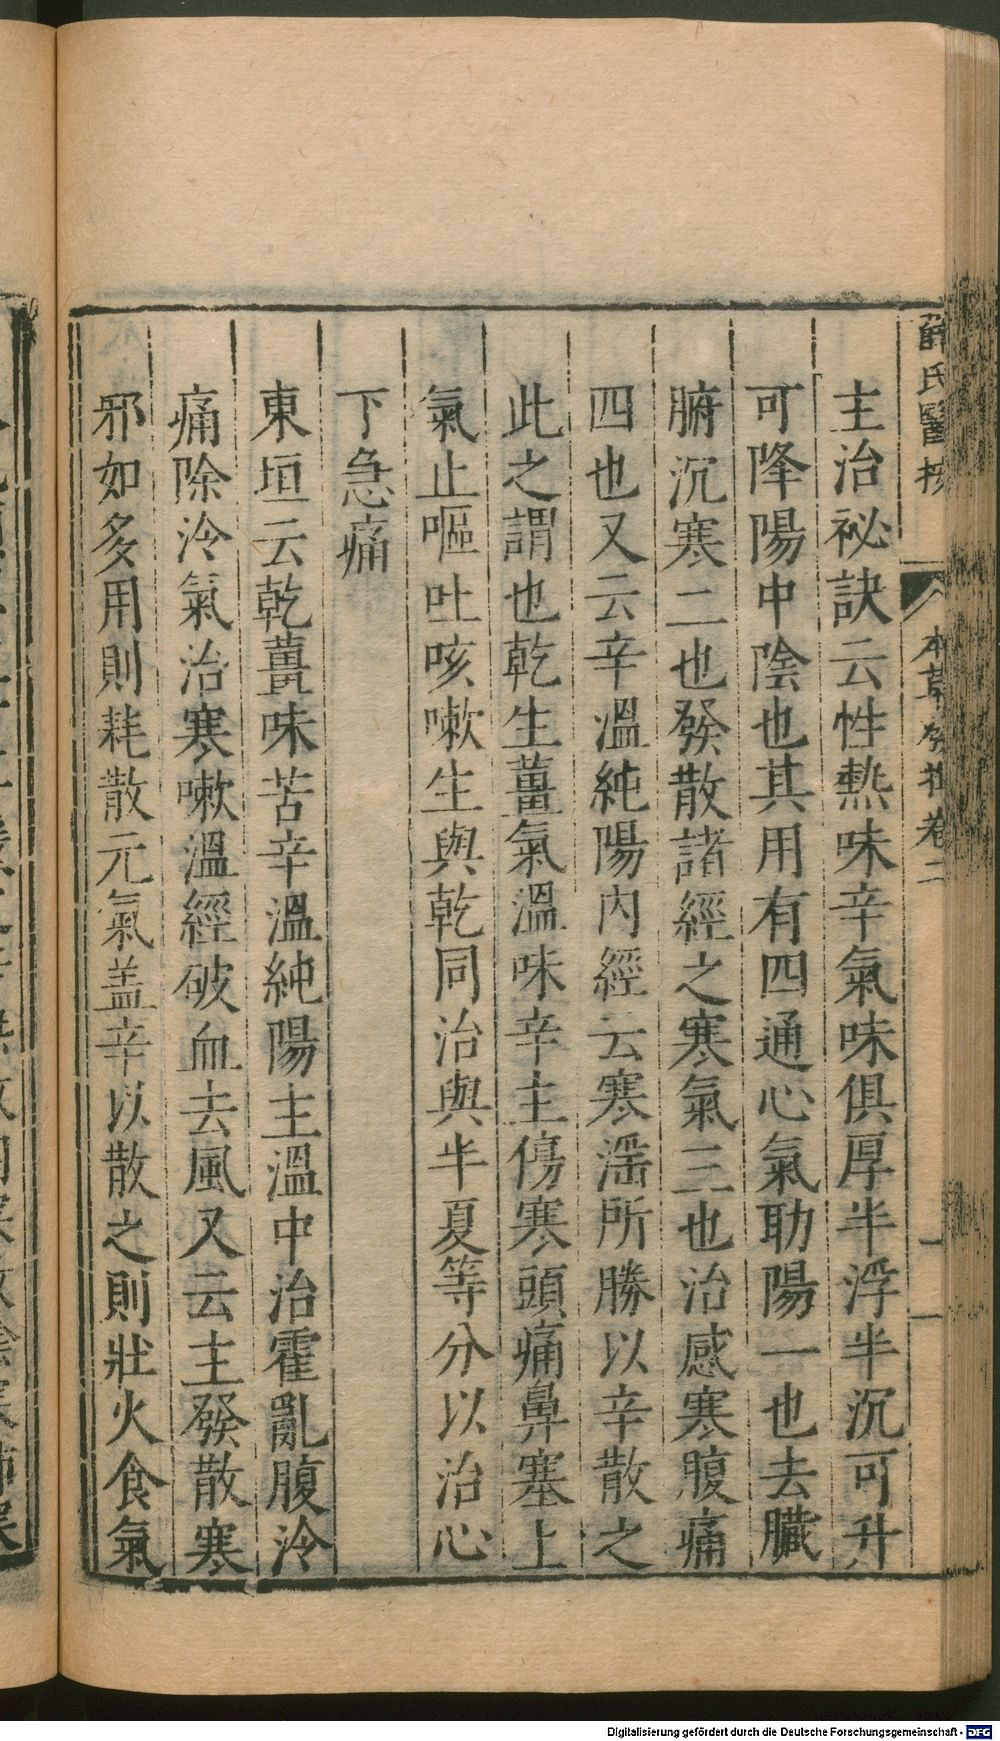 薛氏醫按 本草發揮卷二
主治祕訣云性熱味辛氣味俱厚半浮半沉可升
可降陽中陰也其用有四通心氣助陽一也去臟
腑沉寒二也發散諸經之寒氣三也治感寒腹痛
四也又云辛溫純陽內經云寒淫所勝以辛散之
此之謂也乾生薑氣溫味辛主傷寒頭痛鼻塞上
氣止嘔吐咳嗽生與乾同治與半夏等分以治心
下急痛
東垣云乾薑味苦辛溫純陽主溫中治霍亂腹冷
痛除冷氣治寒嗽溫經破血去風又云主發散寒
邪如多用則耗散元氣盖辛以散之則壯火食氣
Digitalisierung gefördert durch die Deutsche Forschungsgemeinschaft - DFG